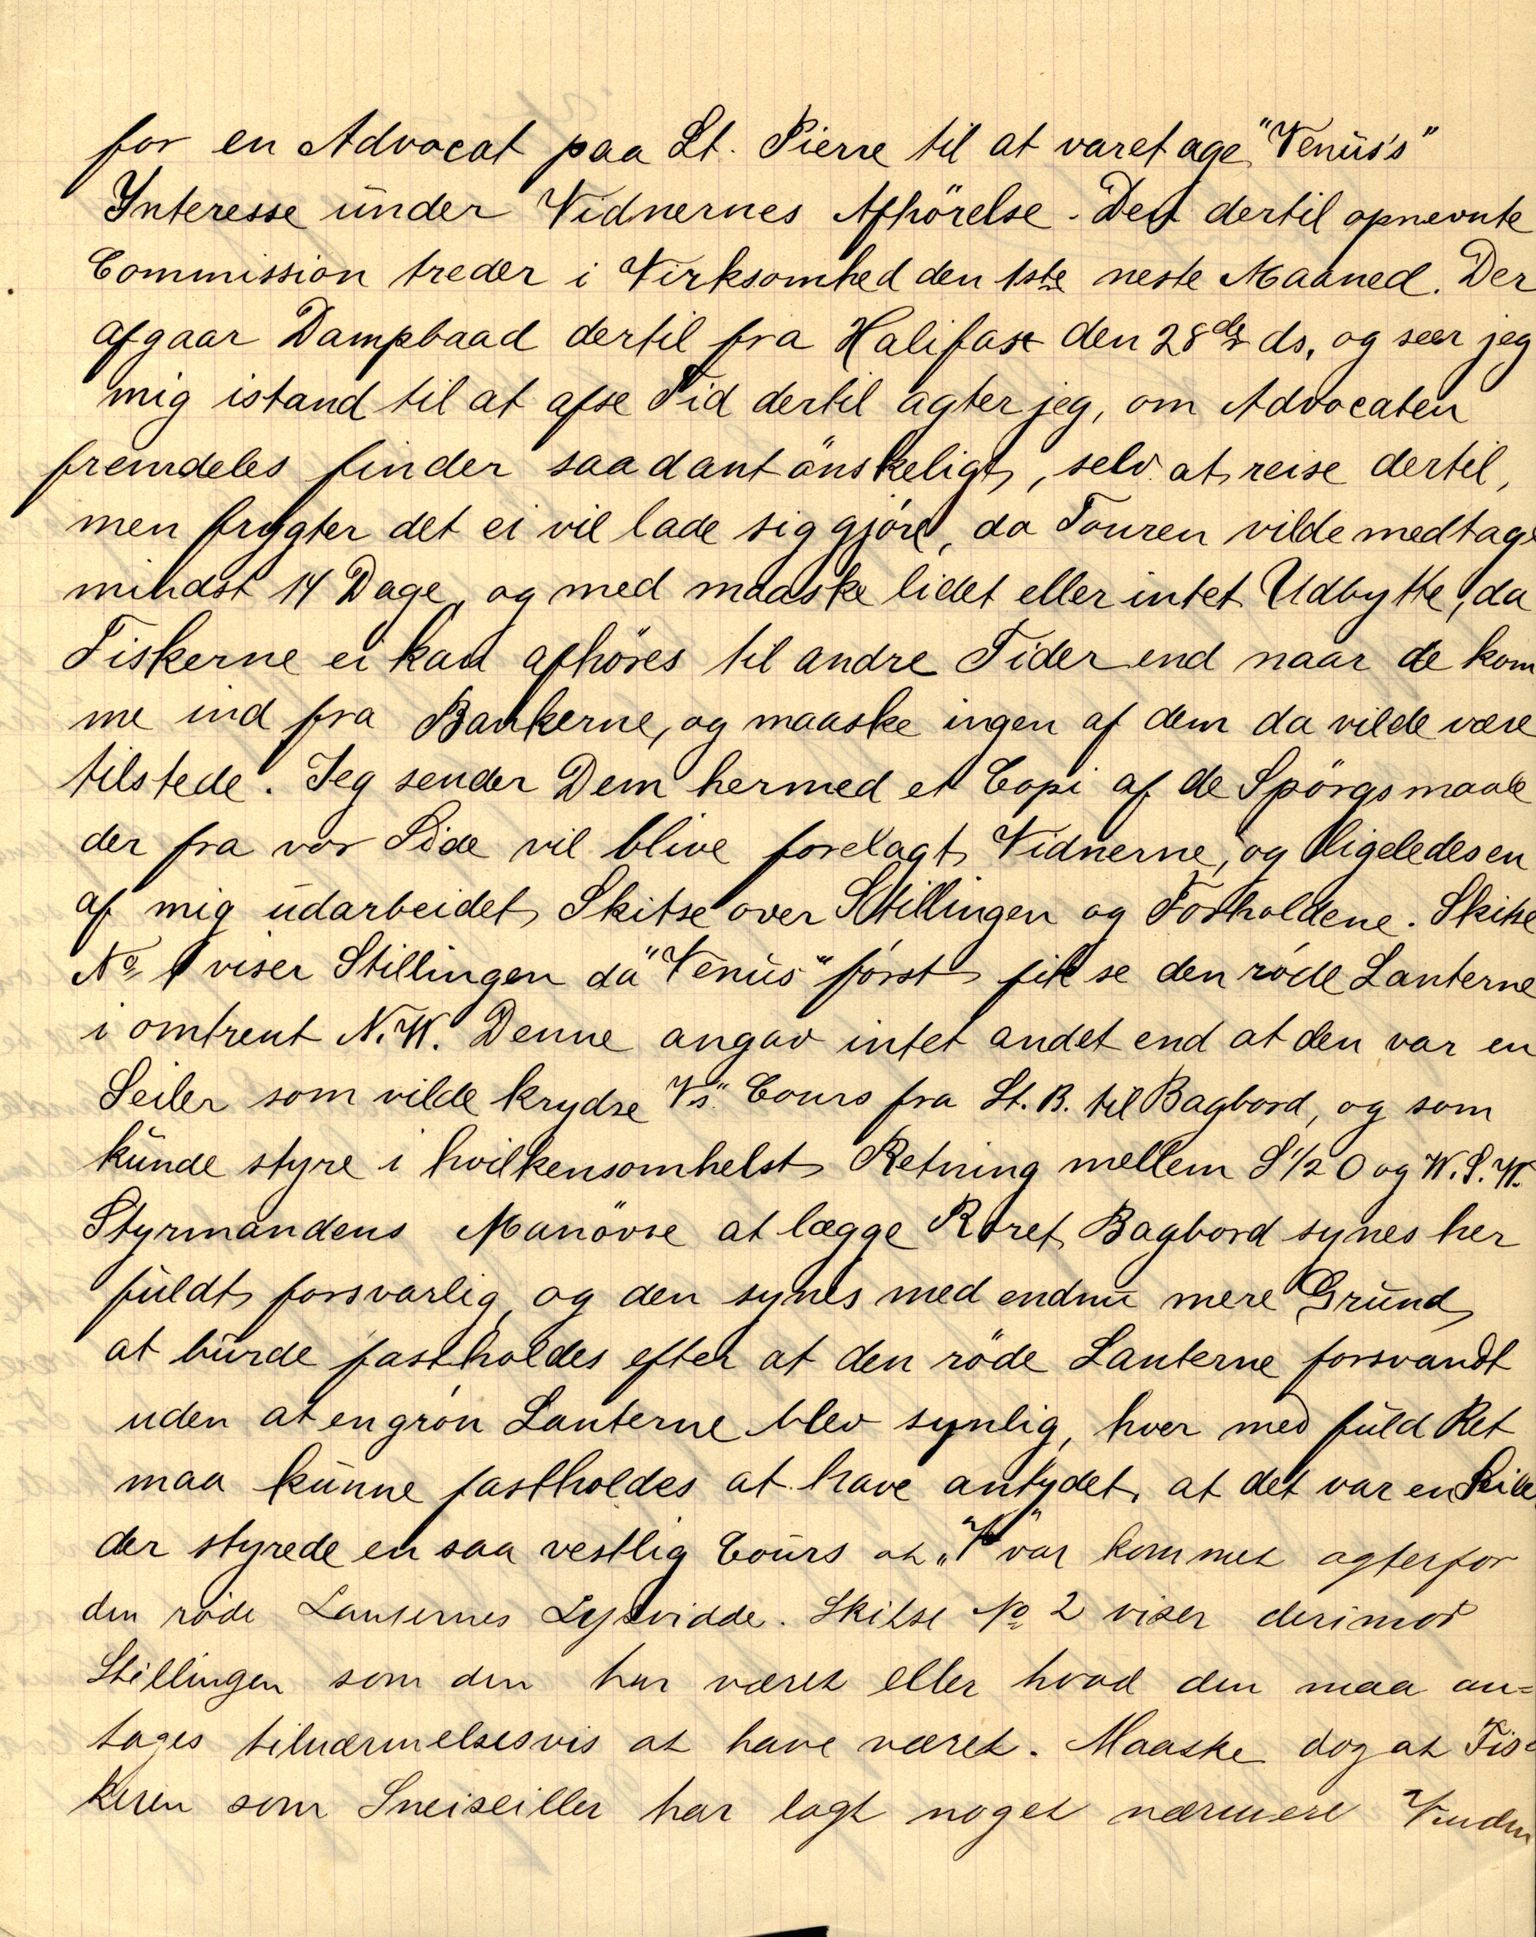 for en Advocat paa St. Pierre til at varetage "Venus's"
Interesse under Vidnernes Afhörelse. Den dertil opnevnte
Commission treder i Virksomhed den 1ste neste Maaned. Der
afgaar Dampbaad dertil fra Halifax den 28de ds, og seer jeg
mig istand til at afse Tid dertil agter jeg, om Advocaten
fremdeles finder saadant önskeligt, selv at reise dertil,
men frygter det ei vil lade sig gjöre, da Touren vilde medtage
mindst 14 Dage, og med maaske lidet eller intet Udbytte, da
Fiskerne ei kan afhöres til andre Tider end naar de kom
me ind fra Bankerne, og maaske ingen af dem da vilde være
tilstede. Jeg sender Dem hermed et Copi af de Spörgsmaale
der fra vor Side vil blive forelagt Vidnerne, og ligeledes en
af mig udarbeidet Skitse over Stillingen og Forholdene. Skitse
No 1 viser Stillingen da "Venus" först fik se den röde Lanterne
i omtrent N.W. Denne angav intet andet end at den var en
Seiler som vilde krydse V's" Cours fra St. B. til Bagbord, og som
kunde styre i hvilkensomhelst Retning mellem S 1/2 O og W.S.W.
Styrmandens Manövre at lægge Roret Bagbord synes her
fuldt forsvarlig, og den synes med endnu mere Grund
at burde fastholdes efter at den röde Lanterne forsvandt
uden at en grön Lanterne blev synlig, hver med fuld Ret
maa kunne fastholdes at have antydet, at det var en Seiler
der styrede en saa vestlig Cours at "V" var kommet agterfor
den röde Lanternes Lysvidde. Skitse No 2 viser derimod
Stillingen som den har været eller hvad den maa an=
tages tilnærmelsesvis at have været. Maaske dog at Fis=
keren som Sneiseiller har lagt noget nærmere Vinden